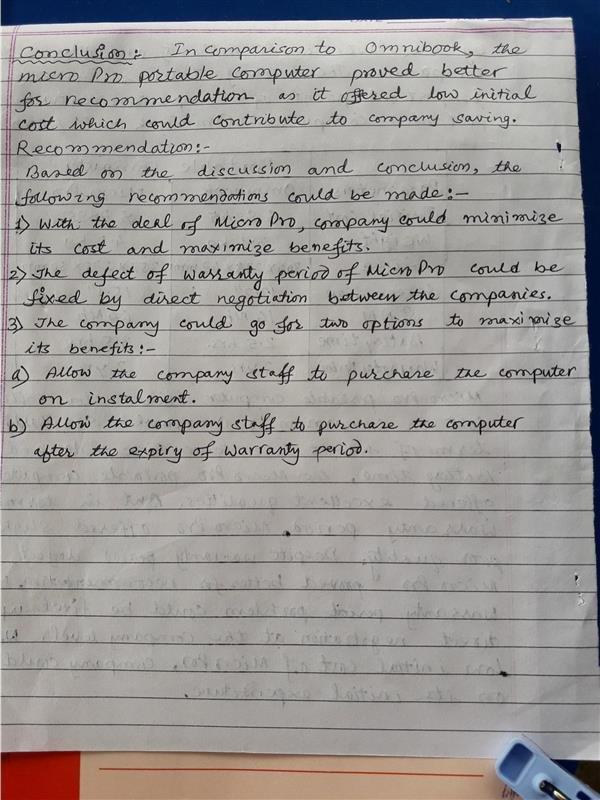 Conclusion: In comparison to Omnibook, the
micro Pro portable computer proved better
for recommendation as it offered low initial
cost which could contribute to company saving.
Recommendation:-
Based on the discussion and conclusion, the
following recommendations could be made:-
1) With the deal of Micro Pro, company could minimize
its cost and maximize benefits.
2) The defect of warranty period of Micro Pro could be
fixed by direct negotiation between the companies.
3) The company could go for two options to maximize
its benefits:-
a) Allow the company staff to purchase the computer
on instalment.
b) Allow the company staff to purchase the computer
after the expiry of warranty period.